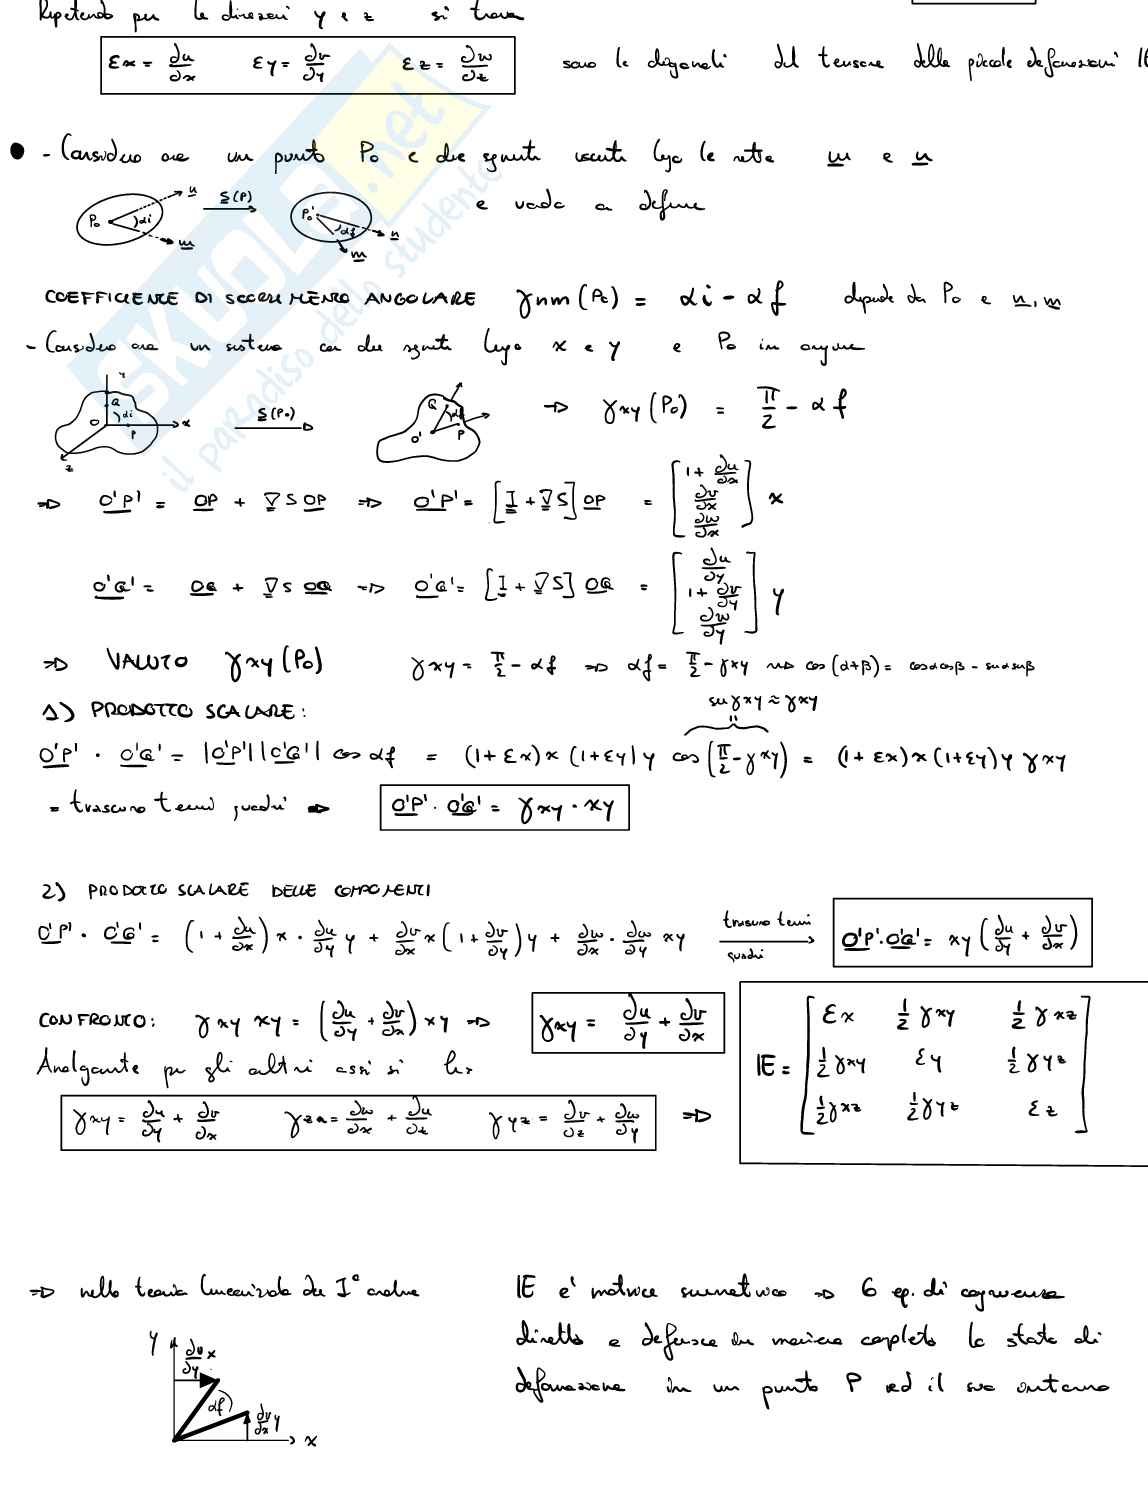 Ripetendo per le direzioni y e z si trova
εx = ∂u/∂x εy = ∂v/∂y εz = ∂w/∂z sono le diagonali del tensore delle piccole deformazioni IE
- Considero ora un punto P₀ e due segmenti uscenti lungo le rette m e n
e vado a definire
P₀ αi n m S(P) P₀' αf n m
COEFFICIENTE DI SCORRIMENTO ANGOLARE γnm(P₀) = αi - αf dipende da P₀ e n, m
- Considero ora un sistema con due segmenti lungo x e y e P₀ in origine
y Q αi O P x z S(P₀) Q αf O' P ⇒ γxy(P₀) = π/2 - αf
⇒ O'P' = OP + ∇S OP ⇒ O'P' = [I + ∇S] OP = [1 + ∂u/∂x ; ∂v/∂x ; ∂w/∂x] x
O'Q' = OQ + ∇S OQ ⇒ O'Q' = [I + ∇S] OQ = [∂u/∂y ; 1 + ∂v/∂y ; ∂w/∂y] y
⇒ VALUTO γxy(P₀) γxy = π/2 - αf ⇒ αf = π/2 - γxy ⇝ cos(α+β) = cosαcosβ - senαsenβ
1) PRODOTTO SCALARE:
sen γxy ≈ γxy
O'P' · O'Q' = |O'P'||O'Q'| cos αf = (1+εx)x (1+εy)y cos(π/2 - γxy) = (1+εx)x(1+εy)y γxy
= trascuro temi quadri ⇒ O'P' · O'Q' = γxy · xy
2) PRODOTTO SCALARE DELLE COMPONENTI
O'P' · O'Q' = (1 + ∂u/∂x) x · ∂u/∂y y + ∂v/∂x x (1 + ∂v/∂y) y + ∂w/∂x · ∂w/∂y xy trascuro temi quadri → O'P'·O'Q' = xy (∂u/∂y + ∂v/∂x)
CONFRONTO: γxy xy = (∂u/∂y + ∂v/∂x) xy ⇒ γxy = ∂u/∂y + ∂v/∂x
Analogamente per gli altri assi si ha
γxy = ∂u/∂y + ∂v/∂x γzx = ∂w/∂x + ∂u/∂z γyz = ∂v/∂z + ∂w/∂y ⇒ IE = [εx ½γxy ½γxz ; ½γxy εy ½γyz ; ½γxz ½γyz εz]
⇒ nella teoria linearizzata del I° ordine
IE è matrice simmetrica ⇒ 6 eq. di congruenza
diretta e definisce in maniera completa lo stato di
deformazione in un punto P ed il suo intorno
y ∂u/∂y x αf ∂v/∂x y x
SKUOLA.net
il paradiso dello studente